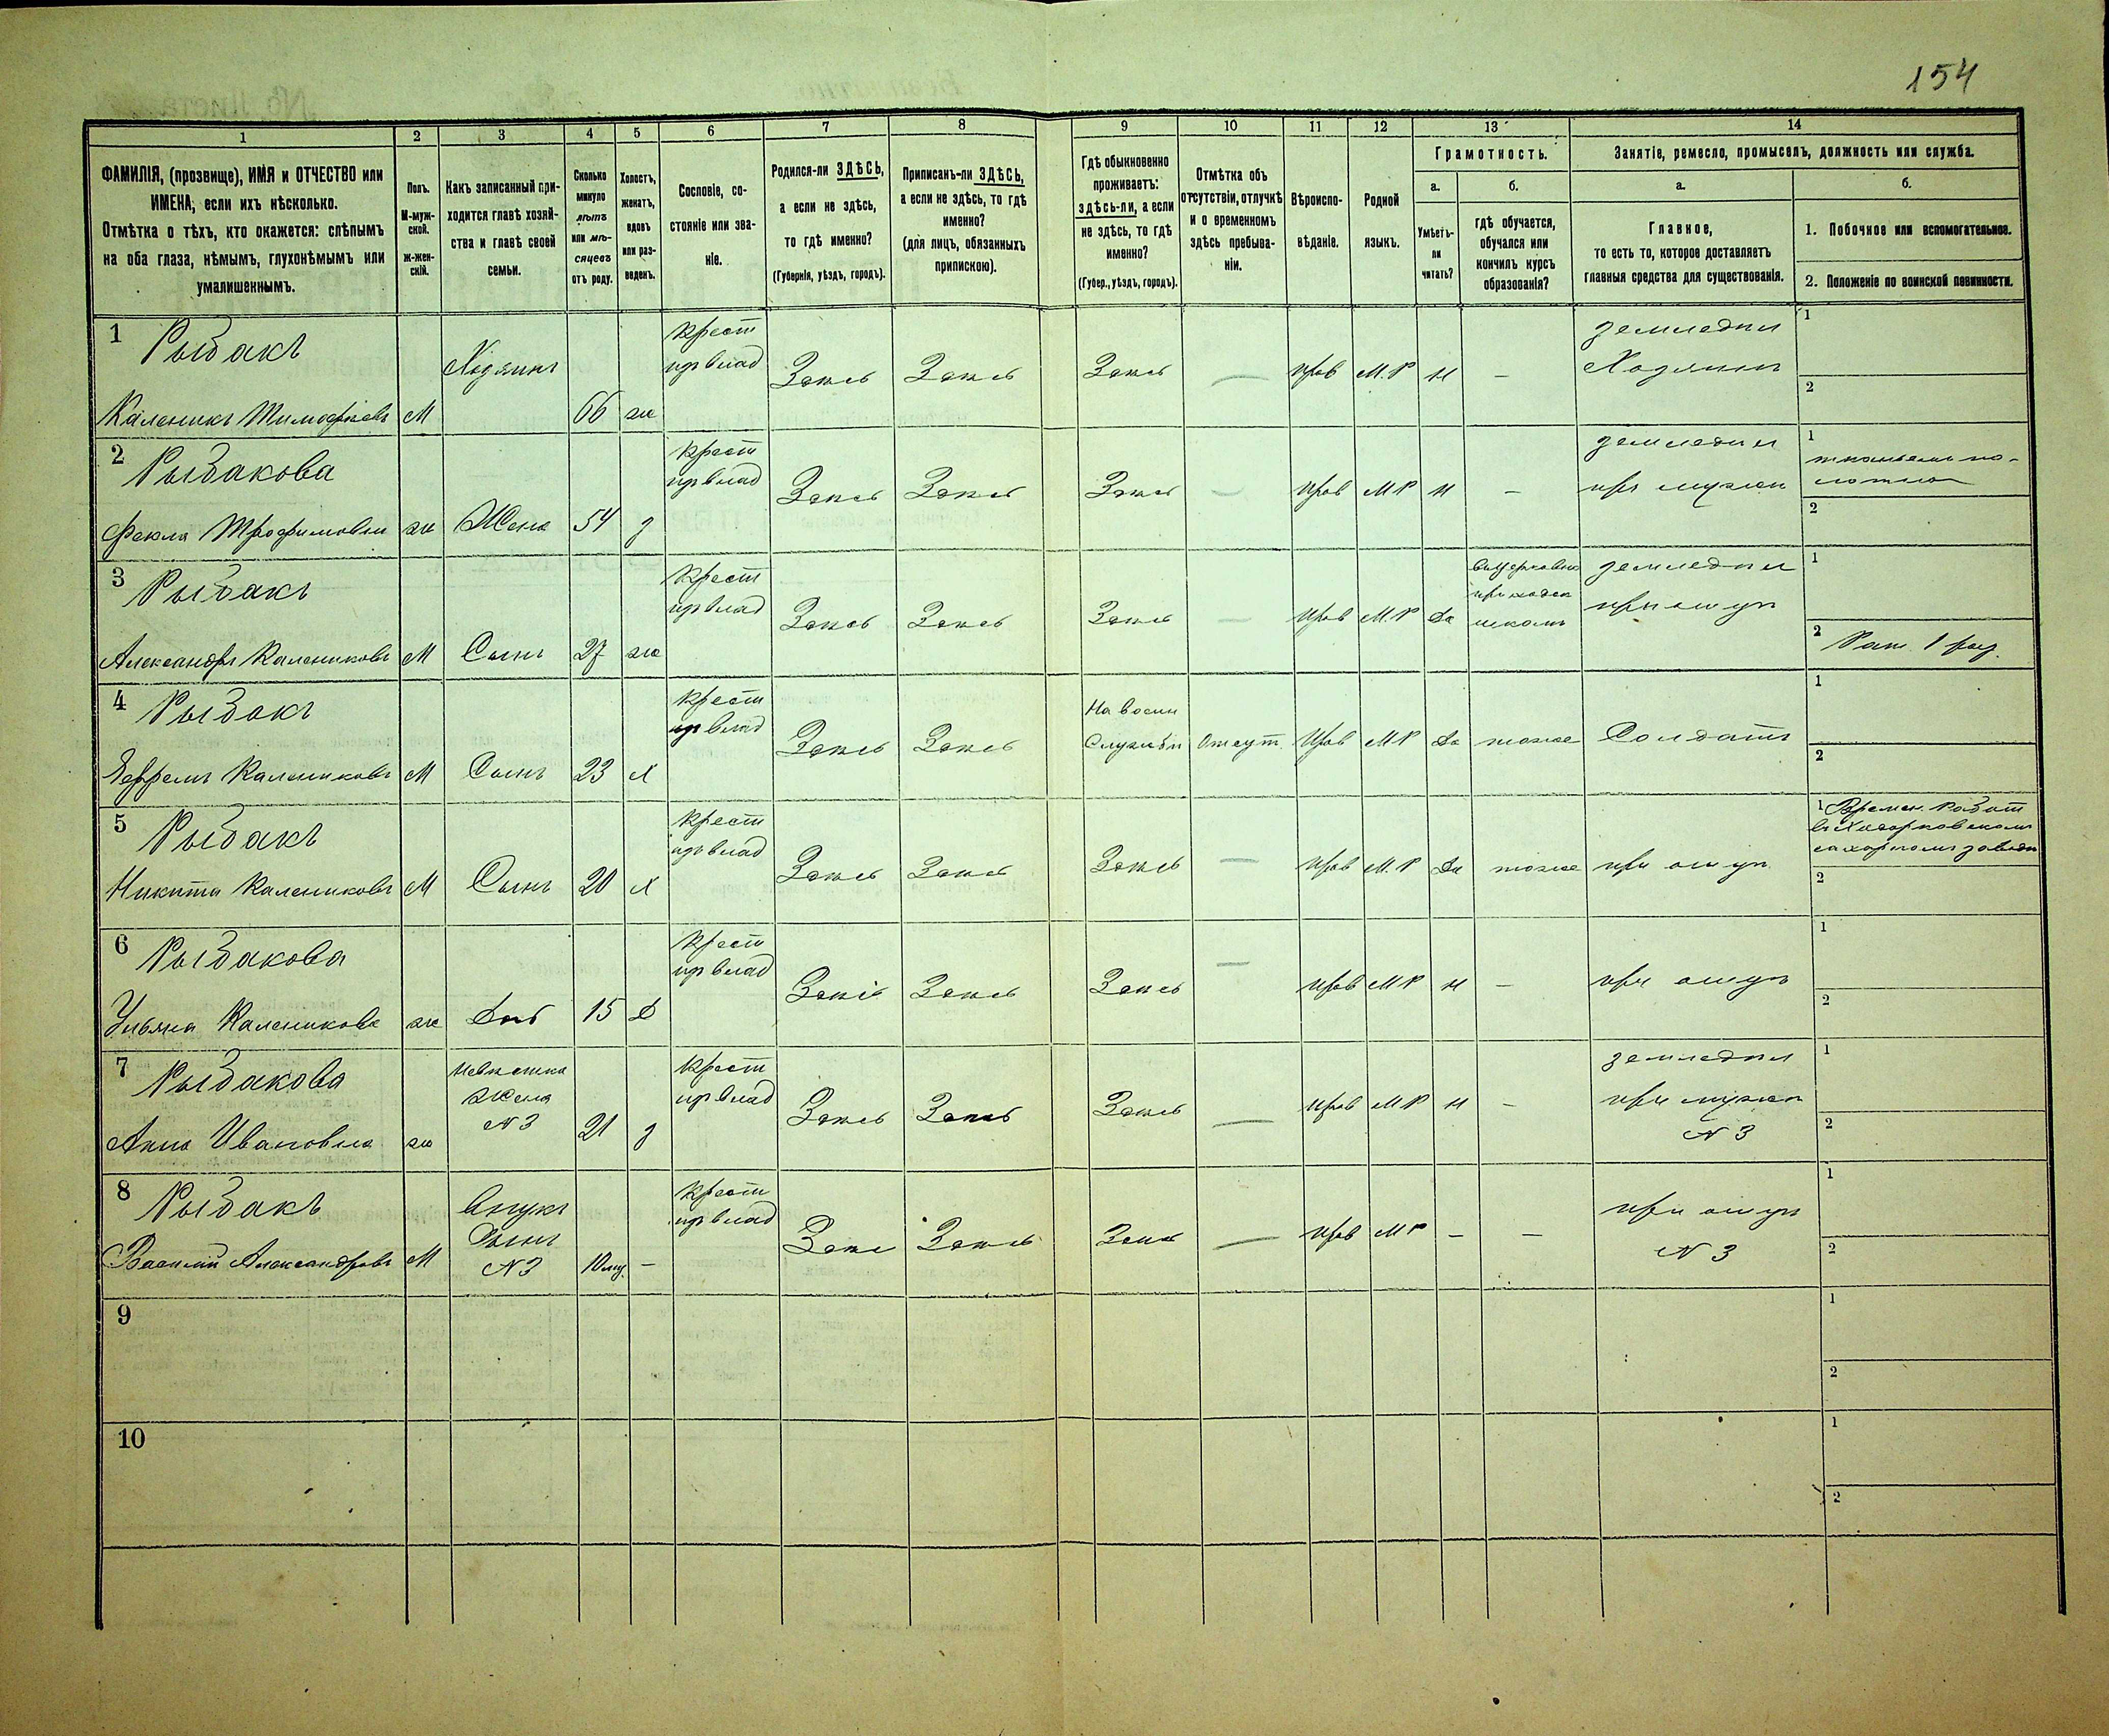 154
1 2 3 4 5 6 7 8 9 10 11 12 13 14
ФАМИЛІЯ, (прозвище), ИМЯ и ОТЧЕСТВО или
ИМЕНА, если ихъ нѣсколько.
Отмѣтка о тѣхъ, кто окажется: слѣпымъ
на оба глаза, нѣмымъ, глухонѣмымъ или
умалишеннымъ.
Полъ.
М-муж-
ской.
Ж-жен-
скій.
Какъ записанный при-
ходится главѣ хозяй-
ства и главѣ своей
семьи.
Сколько
минуло
лѣтъ
или мѣ-
сяцевъ
отъ роду.
Холостъ,
женатъ,
вдовъ
или раз-
веденъ.
Сословіе, со-
стояніе или зва-
ніе.
Родился-ли ЗДѢСЬ,
а если не здѣсь,
то гдѣ именно?
(Губернія, уѣздъ, городъ).
Приписанъ-ли ЗДѢСЬ,
а если не здѣсь, то гдѣ
именно?
(для лицъ, обязанныхъ
припискою).
Гдѣ обыкновенно
проживаетъ:
здѣсь-ли, а если
не здѣсь, то гдѣ
именно?
(Губер., уѣздъ, городъ).
Отмѣтка объ
отсутствіи, отлучкѣ
и о временномъ
здѣсь пребыва-
ніи.
Вѣроиспо-
вѣданіе.
Родной
языкъ.
Грамотность.
а.
Умѣетъ-
ли
читать?
б.
гдѣ обучается,
обучался или
кончилъ курсъ
образованія?
Занятіе, ремесло, промыселъ, должность или служба.
а.
Главное,
то есть то, которое доставляетъ
главныя средства для существованія.
б.
1. Побочное или вспомогательное.
2. Положеніе по воинской повинности.
1 Рыбакъ
Каленикъ Тимофѣевъ М Хозяинъ 66 ж
Крест
изъ влад
Здѣсь Здѣсь Здѣсь — прав М.Р н —
земледѣл
Хозяинъ
1
2
2 Рыбакова
Фекла Трофимовна ж Жена 54 з
Крест
изъ влад
Здѣсь Здѣсь Здѣсь — прав М Р н —
земледѣл
при мужѣ
1 тканьемъ по-
лотна
2
3 Рыбакъ
Александръ Калениковъ М Сынъ 27 ж
Крест
изъ влад
Здѣсь Здѣсь Здѣсь — прав М.Р да
въ церковно
приходск
школѣ
земледѣл
при отцѣ
1
2 Рат. 1 раз.
4 Рыбакъ
Ефремъ Калениковъ М Сынъ 23 х
Крест
изъ влад
Здѣсь Здѣсь
На воен
Службѣ
Отсут. прав М Р да тоже Солдатъ
1
2
5 Рыбакъ
Никита Калениковъ М Сынъ 20 х
Крест
изъ влад
Здѣсь Здѣсь Здѣсь — прав М.Р да тоже при отцѣ
1 Времен. работ
въ Ходорковскомъ
сахарномъ заводѣ
2
6 Рыбакова
Ульяна Каленикова ж Доч 15 д
Крест
изъ влад
Здѣсь Здѣсь Здѣсь — прав М Р н — при отцѣ
1
2
7 Рыбакова
Анна Ивановна ж
Невѣстка
жена
N 3
21 з
Крест
изъ влад
Здѣсь Здѣсь Здѣсь — прав М Р н —
земледѣл
при мужѣ
N 3
1
2
8 Рыбакъ
Василій Александровъ М
Внукъ
Сынъ
N 3
10 мѣ. —
Крест
изъ влад
Здѣсь Здѣсь Здѣсь — прав М Р — —
при отцѣ
N 3
1
2
9
1
2
10
1
2